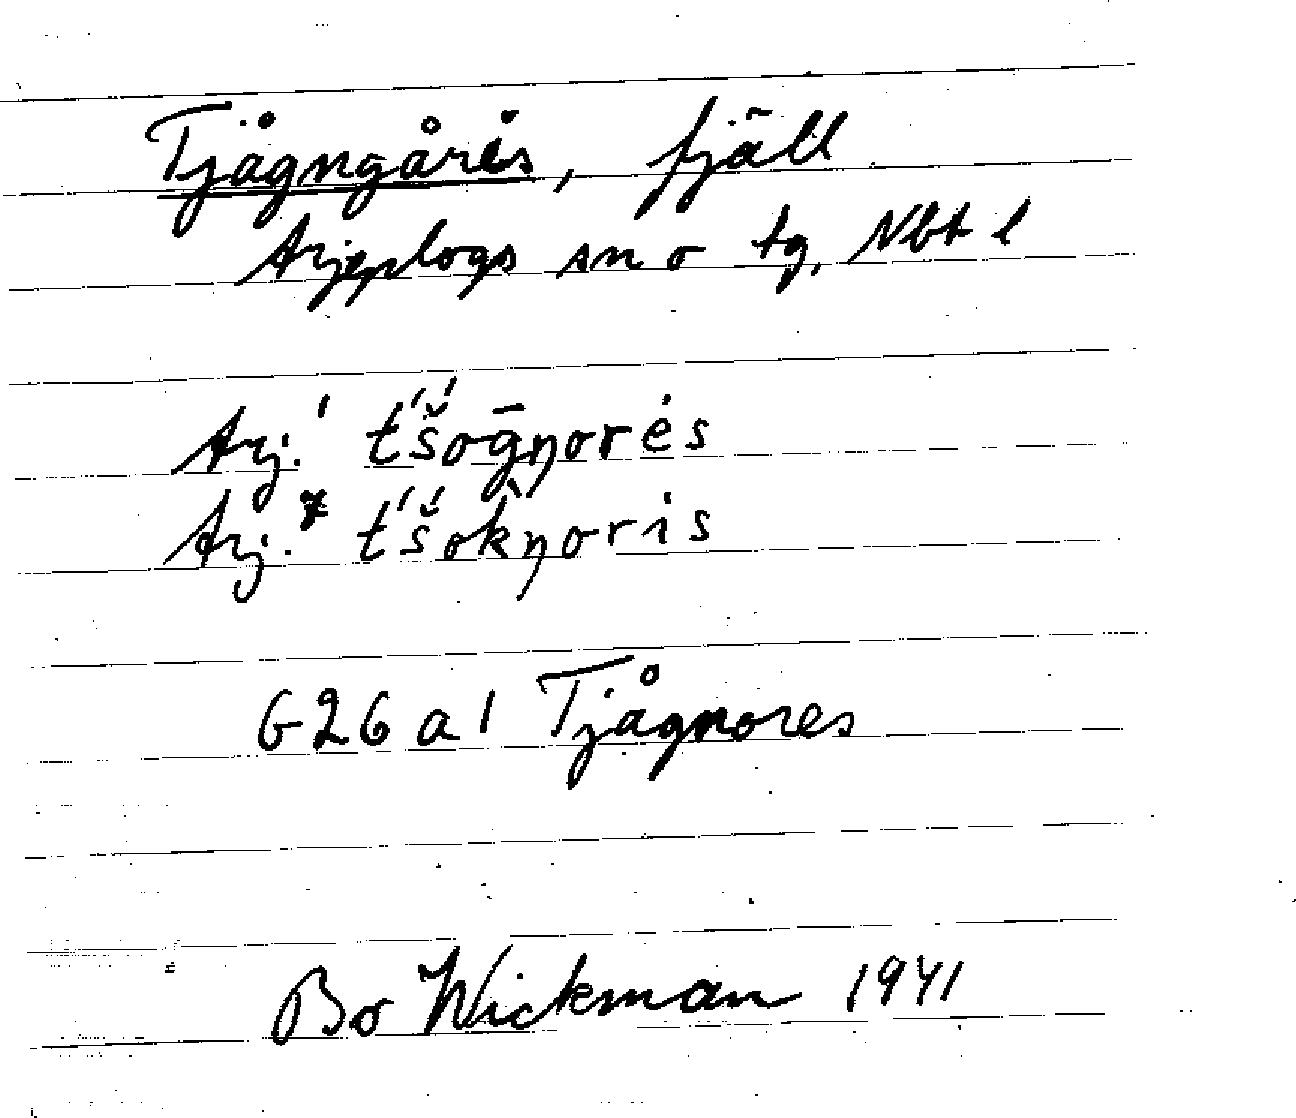 Tjågngåris, fjäll
Arjeplogs sn o tg, Nbt l
Arj.¹ t́š́oḡŋorės
Arj.² t́š́ok̀ŋoris
G26 a 1 Tjågnores
Bo Wickman 1941